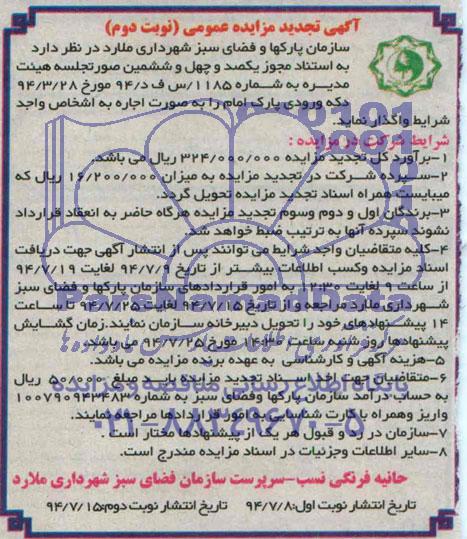 آگهی تجدید مزایده عمومی (نوبت دوم)
سازمان پارکها و فضای سبز شهرداری ملارد در نظر دارد
به استناد مجوز یکصد و چهل و ششمین صورتجلسه هیئت
مدیره به شماره ۱۱۸۵/س ف د/۹۴ مورخ ۹۴/۳/۲۸
دکه ورودی پارک امام را به صورت اجاره به اشخاص واجد
شرایط واگذار نماید.
شرایط شرکت در مزایده :
۱-برآورد کل تجدید مزایده ۳۲۴/۰۰۰/۰۰۰ ریال می باشد.
۲-سپرده شرکت در تجدید مزایده به میزان ۱۶/۲۰۰/۰۰۰ ریال که
میبایست همراه اسناد تجدید مزایده تحویل گردد.
۳-برندگان اول و دوم وسوم تجدید مزایده هرگاه حاضر به انعقاد قرارداد
نشوند سپرده آنها به ترتیب ضبط خواهد شد.
۴-کلیه متقاضیان واجد شرایط می توانند پس از انتشار آگهی جهت دریافت
اسناد مزایده وکسب اطلاعات بیشتر از تاریخ ۹۴/۷/۹ لغایت ۹۴/۷/۱۹
از ساعت ۹ لغایت ۱۲:۳۰ به امور قراردادهای سازمان پارکها و فضای سبز
شهرداری ملارد مراجعه و از تاریخ ۹۴/۷/۱۵ لغایت ۹۴/۷/۲۵ تا ساعت
۱۴ پیشنهادهای خود را تحویل دبیرخانه سازمان نمایند.زمان گشایش
پیشنهادها روز شنبه ساعت ۱۴:۳۰ مورخ ۹۴/۷/۲۵ می باشد.
۵-هزینه آگهی و کارشناسی به عهده برنده مزایده می باشد.
۶-متقاضیان جهت اخذ اسناد تجدید مزایده باید مبلغ ۵۰۰/۰۰۰ ریال
به حساب درآمد سازمان پارکها وفضای سبز به شماره ۱۰۰۷۹۰۹۴۳۴۸۳
واریز وهمراه با کارت شناسایی به امور قراردادها مراجعه نمایند.
۷-سازمان در رد و قبول هر یک از پیشنهادها مختار است .
۸-سایر اطلاعات وجزئیات در اسناد مزایده مندرج است.
حانیه فرنگی نسب-سرپرست سازمان فضای سبز شهرداری ملارد
تاریخ انتشار نوبت اول:۹۴/۷/۸ تاریخ انتشار نوبت دوم:۹۴/۷/۱۵
پایگاه اطلاع رسانی مناقصه و مزایده
۰۲۱-۸۸۳۴۹۶۷۰-۵